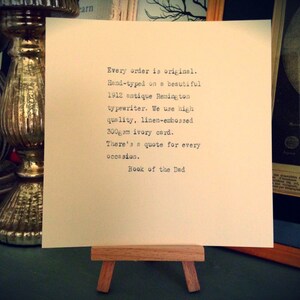 Every order is original.
Hand-typed on a beautiful
1912 antique Remington
typewriter. We use high
quality, linen-embossed
300gsm ivory card.
There's a quote for every
occasion.
Book of the Dad